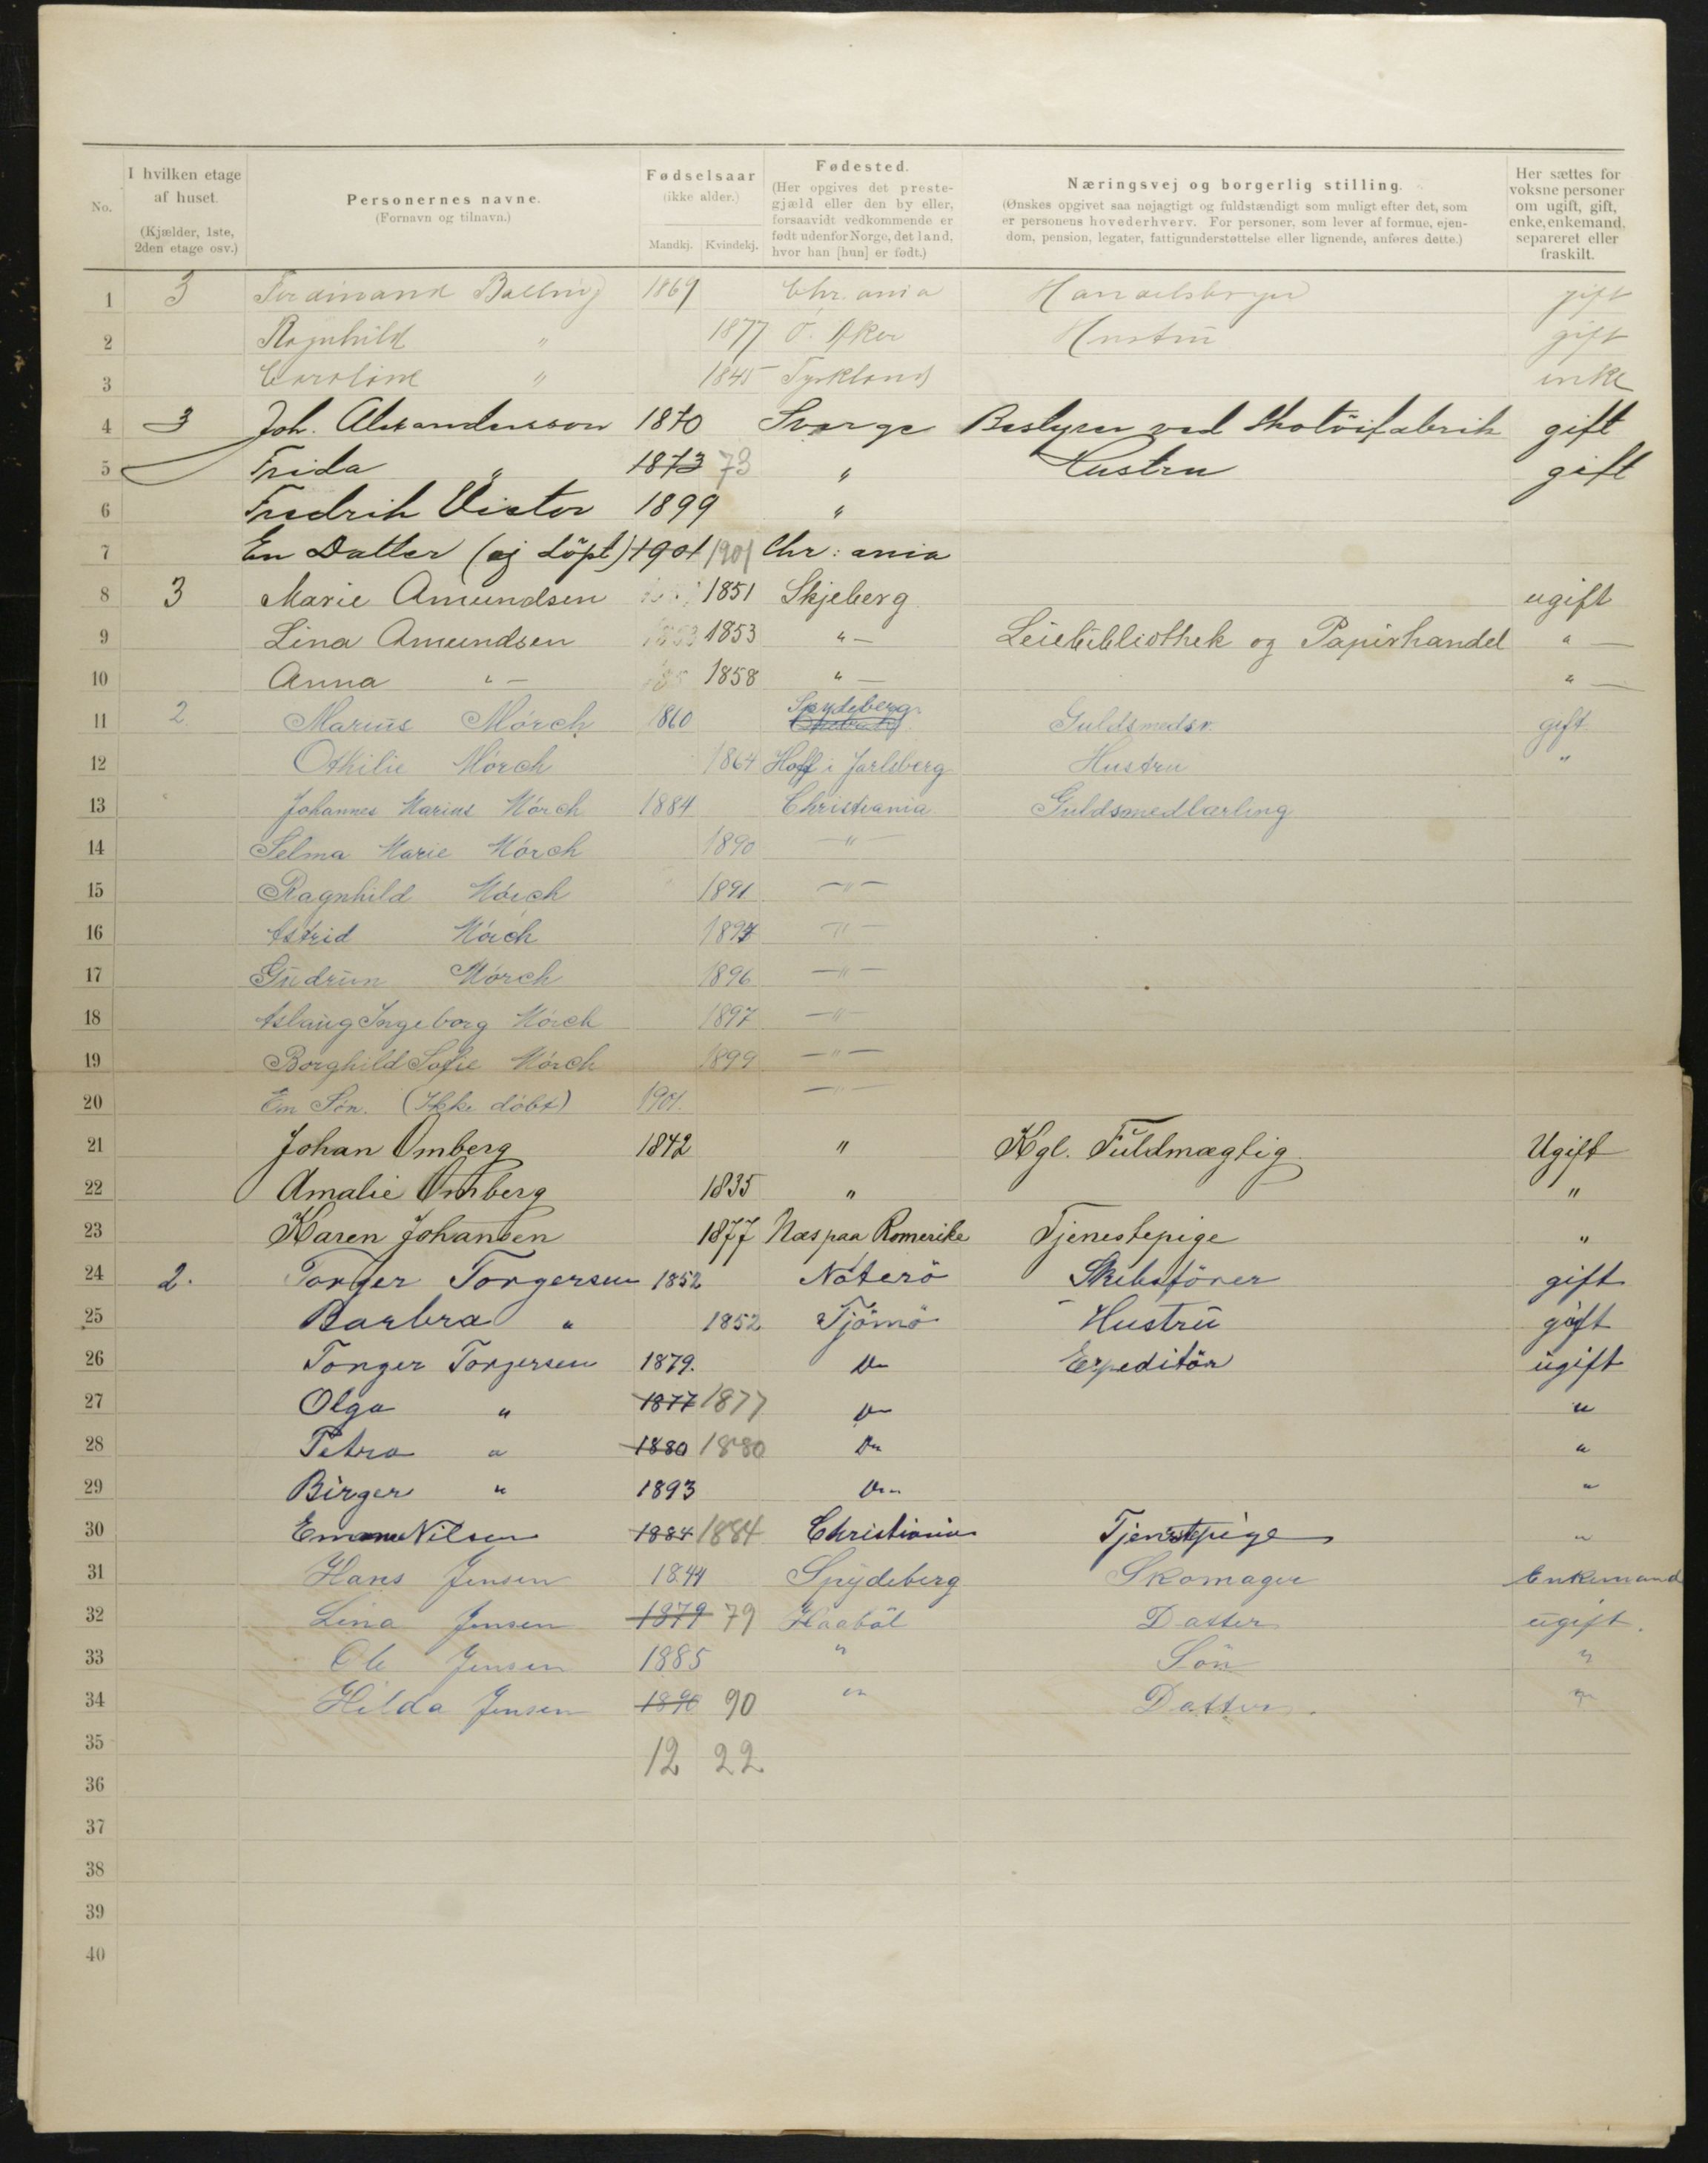 No.
I hvilken etage af huset. (Kjælder, 1ste, 2den etage osv.)
Personernes navne. (Fornavn og tilnavn.)
Fødselsaar (ikke alder.) Mandkj. Kvindekj.
Fødested. (Her opgives det prestegjæld eller den by eller, forsaavidt vedkommende er født udenfor Norge, det land, hvor han [hun] er født.)
Næringsvej og borgerlig stilling. (Ønskes opgivet saa nøjagtigt og fuldstændigt som muligt efter det, som er personens hovederhverv. For personer, som lever af formue, ejendom, pension, legater, fattigunderstøttelse eller lignende, anføres dette.)
Her sættes for voksne personer om ugift, gift, enke, enkemand, separeret eller fraskilt.
1 3 Ferdinand Balling 1869 Chr.ania gift
2 Ragnhild " 1877 Ö. Aker Hustru gift
3 Caroline " 1845 Tyskland enke
4 3 Joh. Alexandersson 1870 Sverge Bestyrer ved Skotöifabrik gift
5 Frida " 1873 73 " Hustru gift
6 Fredrik Victor 1899 "
7 En Datter (ej döpt) 1901 1901 Chr:ania
8 3 Marie Amundsen 1851 Skjeberg ugift
9 Lina Amundsen 1853 1853 " — Leiebibliothek og Papirhandel " —
10 Anna " — 1858 " — " —
11 2 Marius Mörch 1860 Spydeberg Guldsmedsv. gift
12 Othilie Mörch 1864 Hoff i Jarlsberg Hustru "
13 Johannes Marius Mörch 1884 Christiania Guldsmedlærling
14 Selma Marie Mörch 1890 — " —
15 Ragnhild Mörch 1891 — " —
16 Astrid Mörch — " —
17 Gudrun Mörch 1896 — " —
18 Aslaug Ingeborg Mörch 1897 — " —
19 Borghild Sofie Mörch 1899 — " —
20 En Sön. (Ikke döbt) 1901. — " —
21 Johan Omberg 1842 " Kgl. Fuldmægtig Ugift
22 Amalie Omberg 1835 " "
23 Karen Johansen 1877 Næs paa Romerike Tjenestepige "
24 2. Torger Torgersen 1852 Nöterö Skibsförer gift
25 Barbra " 1852 Tjömö Hustru gift
26 Torger Torgersen 1879. Do Expeditör ugift
27 Olga " 1877 1877 Do "
28 Petra " 1880 1880 Do "
29 Birger " 1893 Do "
30 Emma Nilsen 1884 1884 Christiania Tjenestepige "
31 Hans Jensen 1844 Spydeberg Skomager Enkemand
32 Lina Jensen 1879 79 Haaböl Datter ugift.
33 Ole Jensen 1885 " Sön "
34 Hilda Jensen 1890 90 " Datter. "
35 12 22
36
37
38
39
40